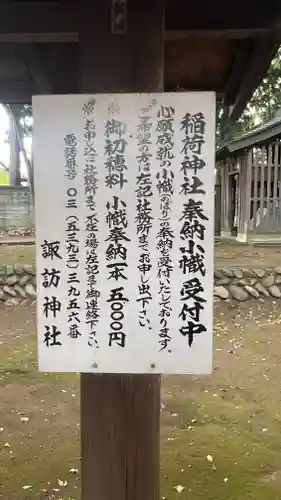 稲荷神社 奉納小幟 受付中
心願成就の小幟(のぼり)の奉納を受付いたしております。
※ご希望の方は左記社務所までお申し出下さい。
※御初穂料 小幟奉納一本 五〇〇〇円
※お申し込は社務所まで 不在の場は左記まで御連絡下さい。
電話番号 〇三(五二九三)三九五六番
諏訪神社